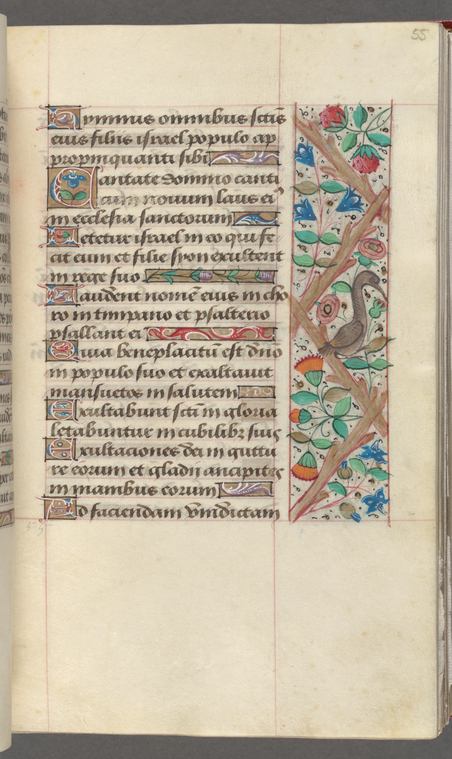 55
Hymnus omnibus sctis
eius filiis israel populo ap
propinquanti sibi
Cantate domino canti
cum novum laus ei9
in ecclesia sanctorum
Letetur israel in eo qui fe
cit eum et filie syon exultent
in rege suo
Laudent nomē eius in cho
ro in timpano et psalterio
psallant ei
Quia beneplacitū est dño
in populo suo et exaltavit
mansuetos in salutem
Exultabunt scti in gloria
letabuntur in cubilibꝰ suis
Exultaciones dei in guttu
re eorum et gladii ancipites
in manibus eorum
Ad faciendam vindictam